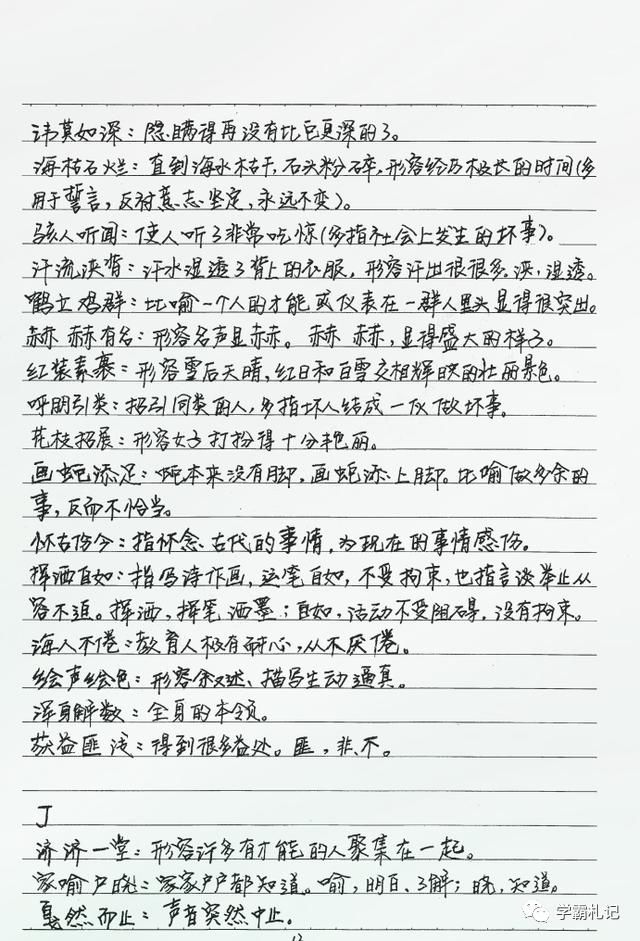 讳莫如深：隐瞒得再没有比它更深的了。
海枯石烂：直到海水枯干，石头粉碎，形容经历极长的时间（多
用于誓言，反衬意志坚定，永远不变）。
骇人听闻：使人听了非常吃惊（多指社会上发生的坏事）。
汗流浃背：汗水湿透了背上的衣服，形容汗出很很多。浃，湿透。
鹤立鸡群：比喻一个人的才能或仪表在一群人里头显得很突出。
赫赫有名：形容名声显赫。赫赫，显得盛大的样子。
红装素裹：形容雪后天晴，红日和白雪交相辉映的壮丽景色。
呼朋引类：招引同类的人，多指坏人结成一伙做坏事。
花枝招展：形容女子打扮得十分艳丽。
画蛇添足：蛇本来没有脚，画蛇添上脚。比喻做多余的
事，反而不恰当。
怀古伤今：指怀念古代的事情，为现在的事情感伤。
挥洒自如：指写诗作画，运笔自如，不受拘束，也指言谈举止从
容不迫。挥洒，挥笔洒墨；自如，活动不受阻碍，没有拘束。
诲人不倦：教育人极有耐心，从不厌倦。
绘声绘色：形容叙述、描写生动逼真。
浑身解数：全身的本领。
获益匪浅：得到很多益处。匪，非、不。
J
济济一堂：形容许多有才能的人聚集在一起。
家喻户晓：家家户户都知道。喻，明白、了解；晓，知道。
戛然而止：声音突然中止。
学霸札记